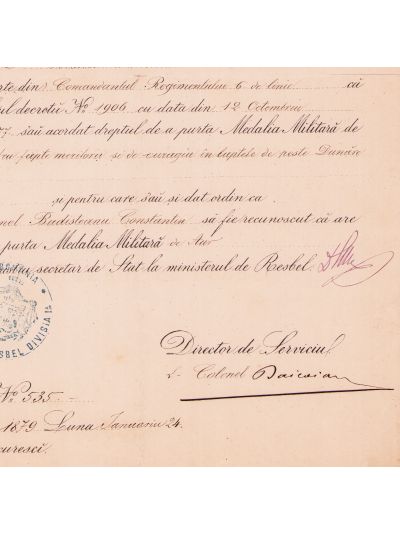 rte din Comandantul Regimentului 6 de linie că
ul decretŭ Nº 1906 cu data din 12 Octombriu
77, s'aŭ acordat dreptul de a purta Medalia Militară de
tru fapte meritorii și de curagiu în luptele de peste Dunăre
și pentru care s'aŭ și dat ordin ca
nel Badisteanu Constantin să fie recunoscut că are
purta Medalia Militară de Aur
secretar de Stat la ministerul de Resbel
ROMANIA
RESBEL DIVISIA 1ª
Director de Serviciŭ
Lt Colonel
Nº 535.
1879 Luna Januariu 24.
curescĭ.